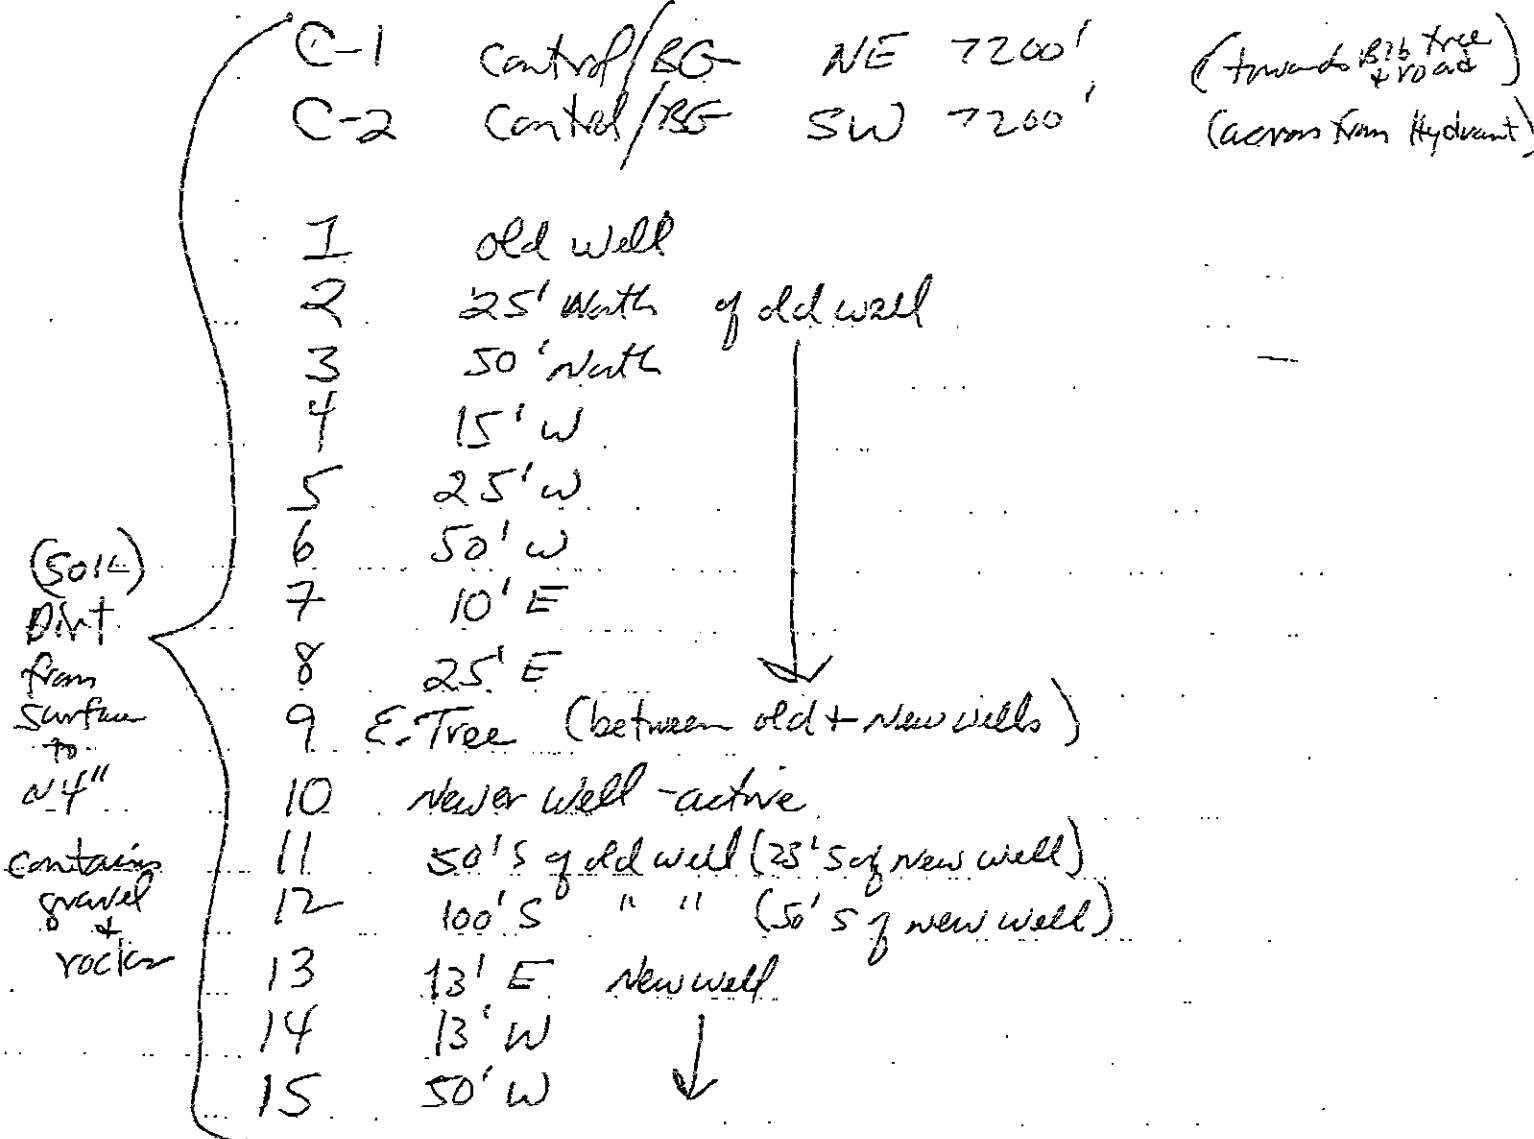 C-1 Control/BG NE >200' (towards Big tree & road)
C-2 Control/BG SW >200' (across from Hydrant)
1 old well
2 25' North of old well
3 50' North
4 15' W
5 25' W
6 50' W
7 10' E
8 25' E
9 E. Tree (between old + New wells)
10 Newer Well - active
11 50' S of old well (25' S of New well)
12 100' S " " (50' S of new well)
13 13' E New well
14 13' W
15 50' W
(SOIL)
Dirt
from
surface
to
~4"
contains
gravel
&
rocks